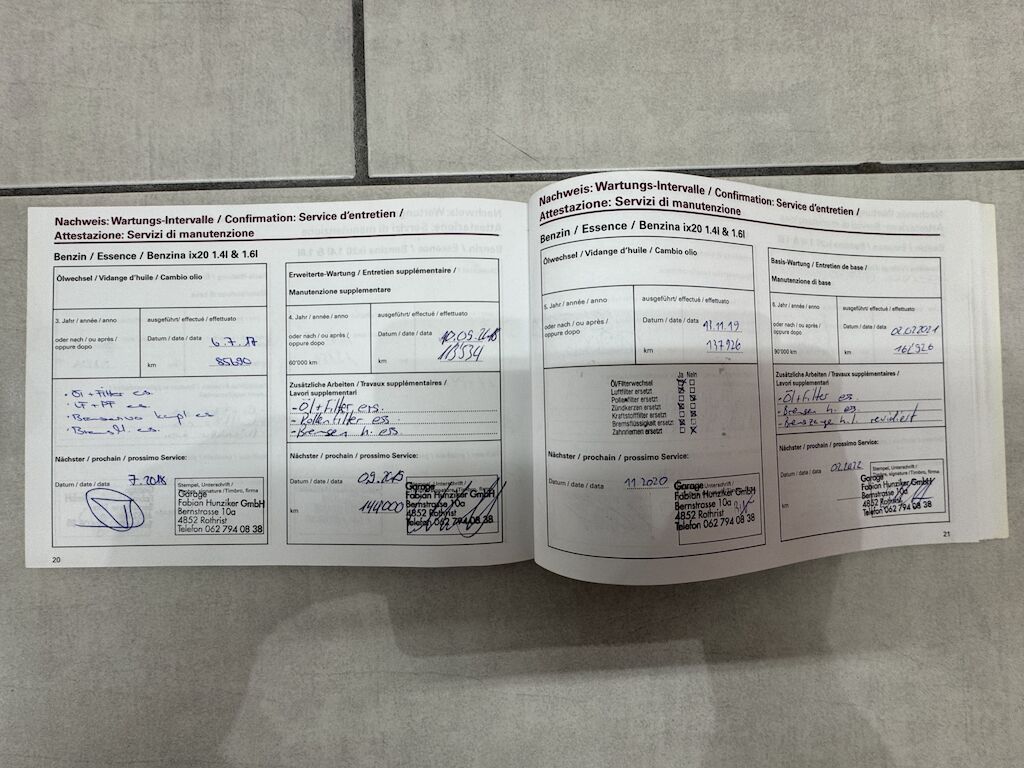 Nachweis: Wartungs-Intervalle / Confirmation: Service d'entretien /
Attestazione: Servizi di manutenzione
Benzin / Essence / Benzina ix20 1.4l & 1.6l
Ölwechsel / Vidange d'huile / Cambio olio
3. Jahr / année / anno
oder nach / ou après /
oppure dopo
ausgeführt/ effectué / effettuato
Datum / date / data 6.7.17
km 85690
· Öl + Filter es.
es.
es
es.
Nächster / prochain / prossimo Service:
Datum / date / data 7.2018
Stempel, Unterschrift /
Timbre, signature /Timbro, firma
Garage
Fabian Hunziker GmbH
Bernstrasse 10a
4852 Rothrist
Telefon 062 794 08 38
Erweiterte-Wartung / Entretien supplémentaire /
Manutenzione supplementare
4. Jahr / année / anno
oder nach / ou après /
oppure dopo
60'000 km
ausgeführt/ effectué / effettuato
Datum / date / data 10.09.2018
km 113534
Zusätzliche Arbeiten / Travaux supplémentaires /
Lavori supplementari
- Öl + Filter ers.
- Pollenfilter ers.
- Bremsen h. ers.
Nächster / prochain / prossimo Service:
Datum / date / data
km 144000
Garage
Fabian Hunziker GmbH
Bernstrasse 10a
4852 Rothrist
Telefon 062 794 08 38
20
Nachweis: Wartungs-Intervalle / Confirmation: Service d'entretien /
Attestazione: Servizi di manutenzione
Benzin / Essence / Benzina ix20 1.4l & 1.6l
Ölwechsel / Vidange d'huile / Cambio olio
5. Jahr / année / anno
oder nach / ou après /
oppure dopo
ausgeführt/ effectué / effettuato
Datum / date / data 13.11.19
km 137926
Ja Nein
Öl/Filterwechsel
Luftfilter ersetzt
Pollenfilter ersetzt
Zündkerzen ersetzt
Kraftstoffilter ersetzt
Bremsflüssigkeit ersetzt
Zahnriemen ersetzt
Nächster / prochain / prossimo Service:
Datum / date / data 11 2020
Garage
Fabian Hunziker GmbH
Bernstrasse 10a
4852 Rothrist
Telefon 062 794 08 38
Basis-Wartung / Entretien de base /
Manutenzione di base
6. Jahr / année / anno
oder nach / ou après /
oppure dopo
90'000 km
ausgeführt/ effectué / effettuato
Datum / date / data 02.02.2021
km 161926
Zusätzliche Arbeiten / Travaux supplémentaires /
Lavori supplementari
- Öl + Filter es.
- Bremsen h. es.
- h.l. revidiert
Nächster / prochain / prossimo Service:
Datum / date / data 02.2022
Stempel, Unterschrift /
Timbre, signature /Timbro, firma
Garage
Fabian Hunziker GmbH
Bernstrasse 10a
4852 Rothrist
Telefon 062 794 08 38
21